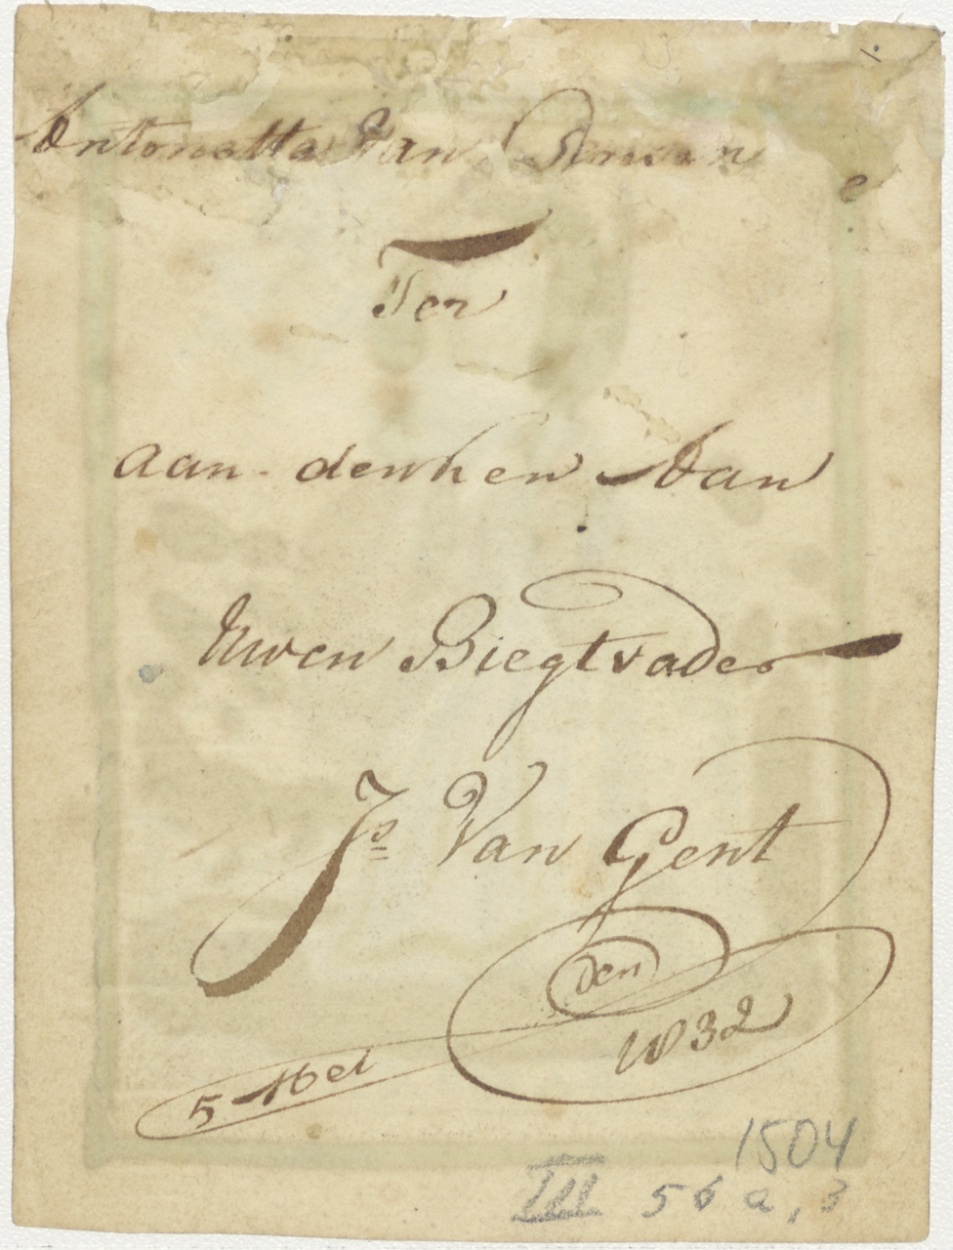 Antonetta Van
Ter
aan-denken Van
Uwen Biegtvader
Js Van Gent
den
5 Mei 1832
1504
III 56 a, 3